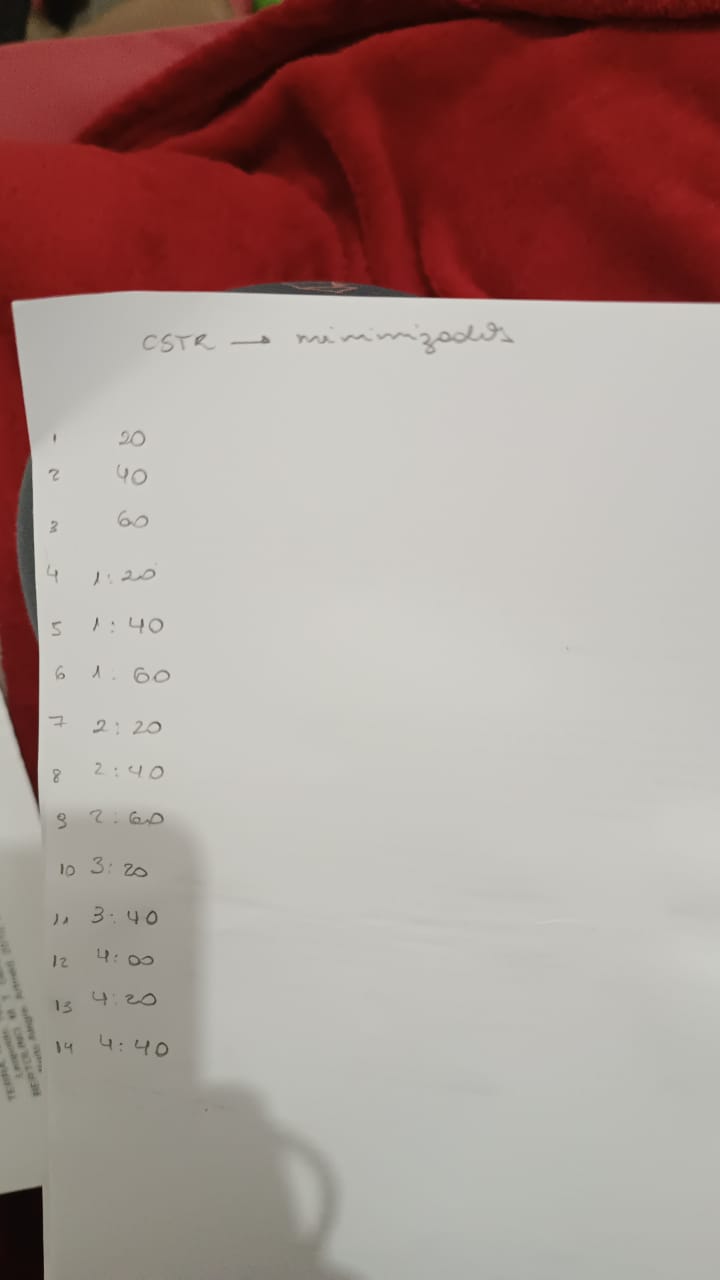 CSTR → minimizados
1 20
2 40
3 60
4 1:20
5 1:40
6 1:60
7 2:20
8 2:40
9 2:60
10 3:20
11 3:40
12 4:00
13 4:20
14 4:40